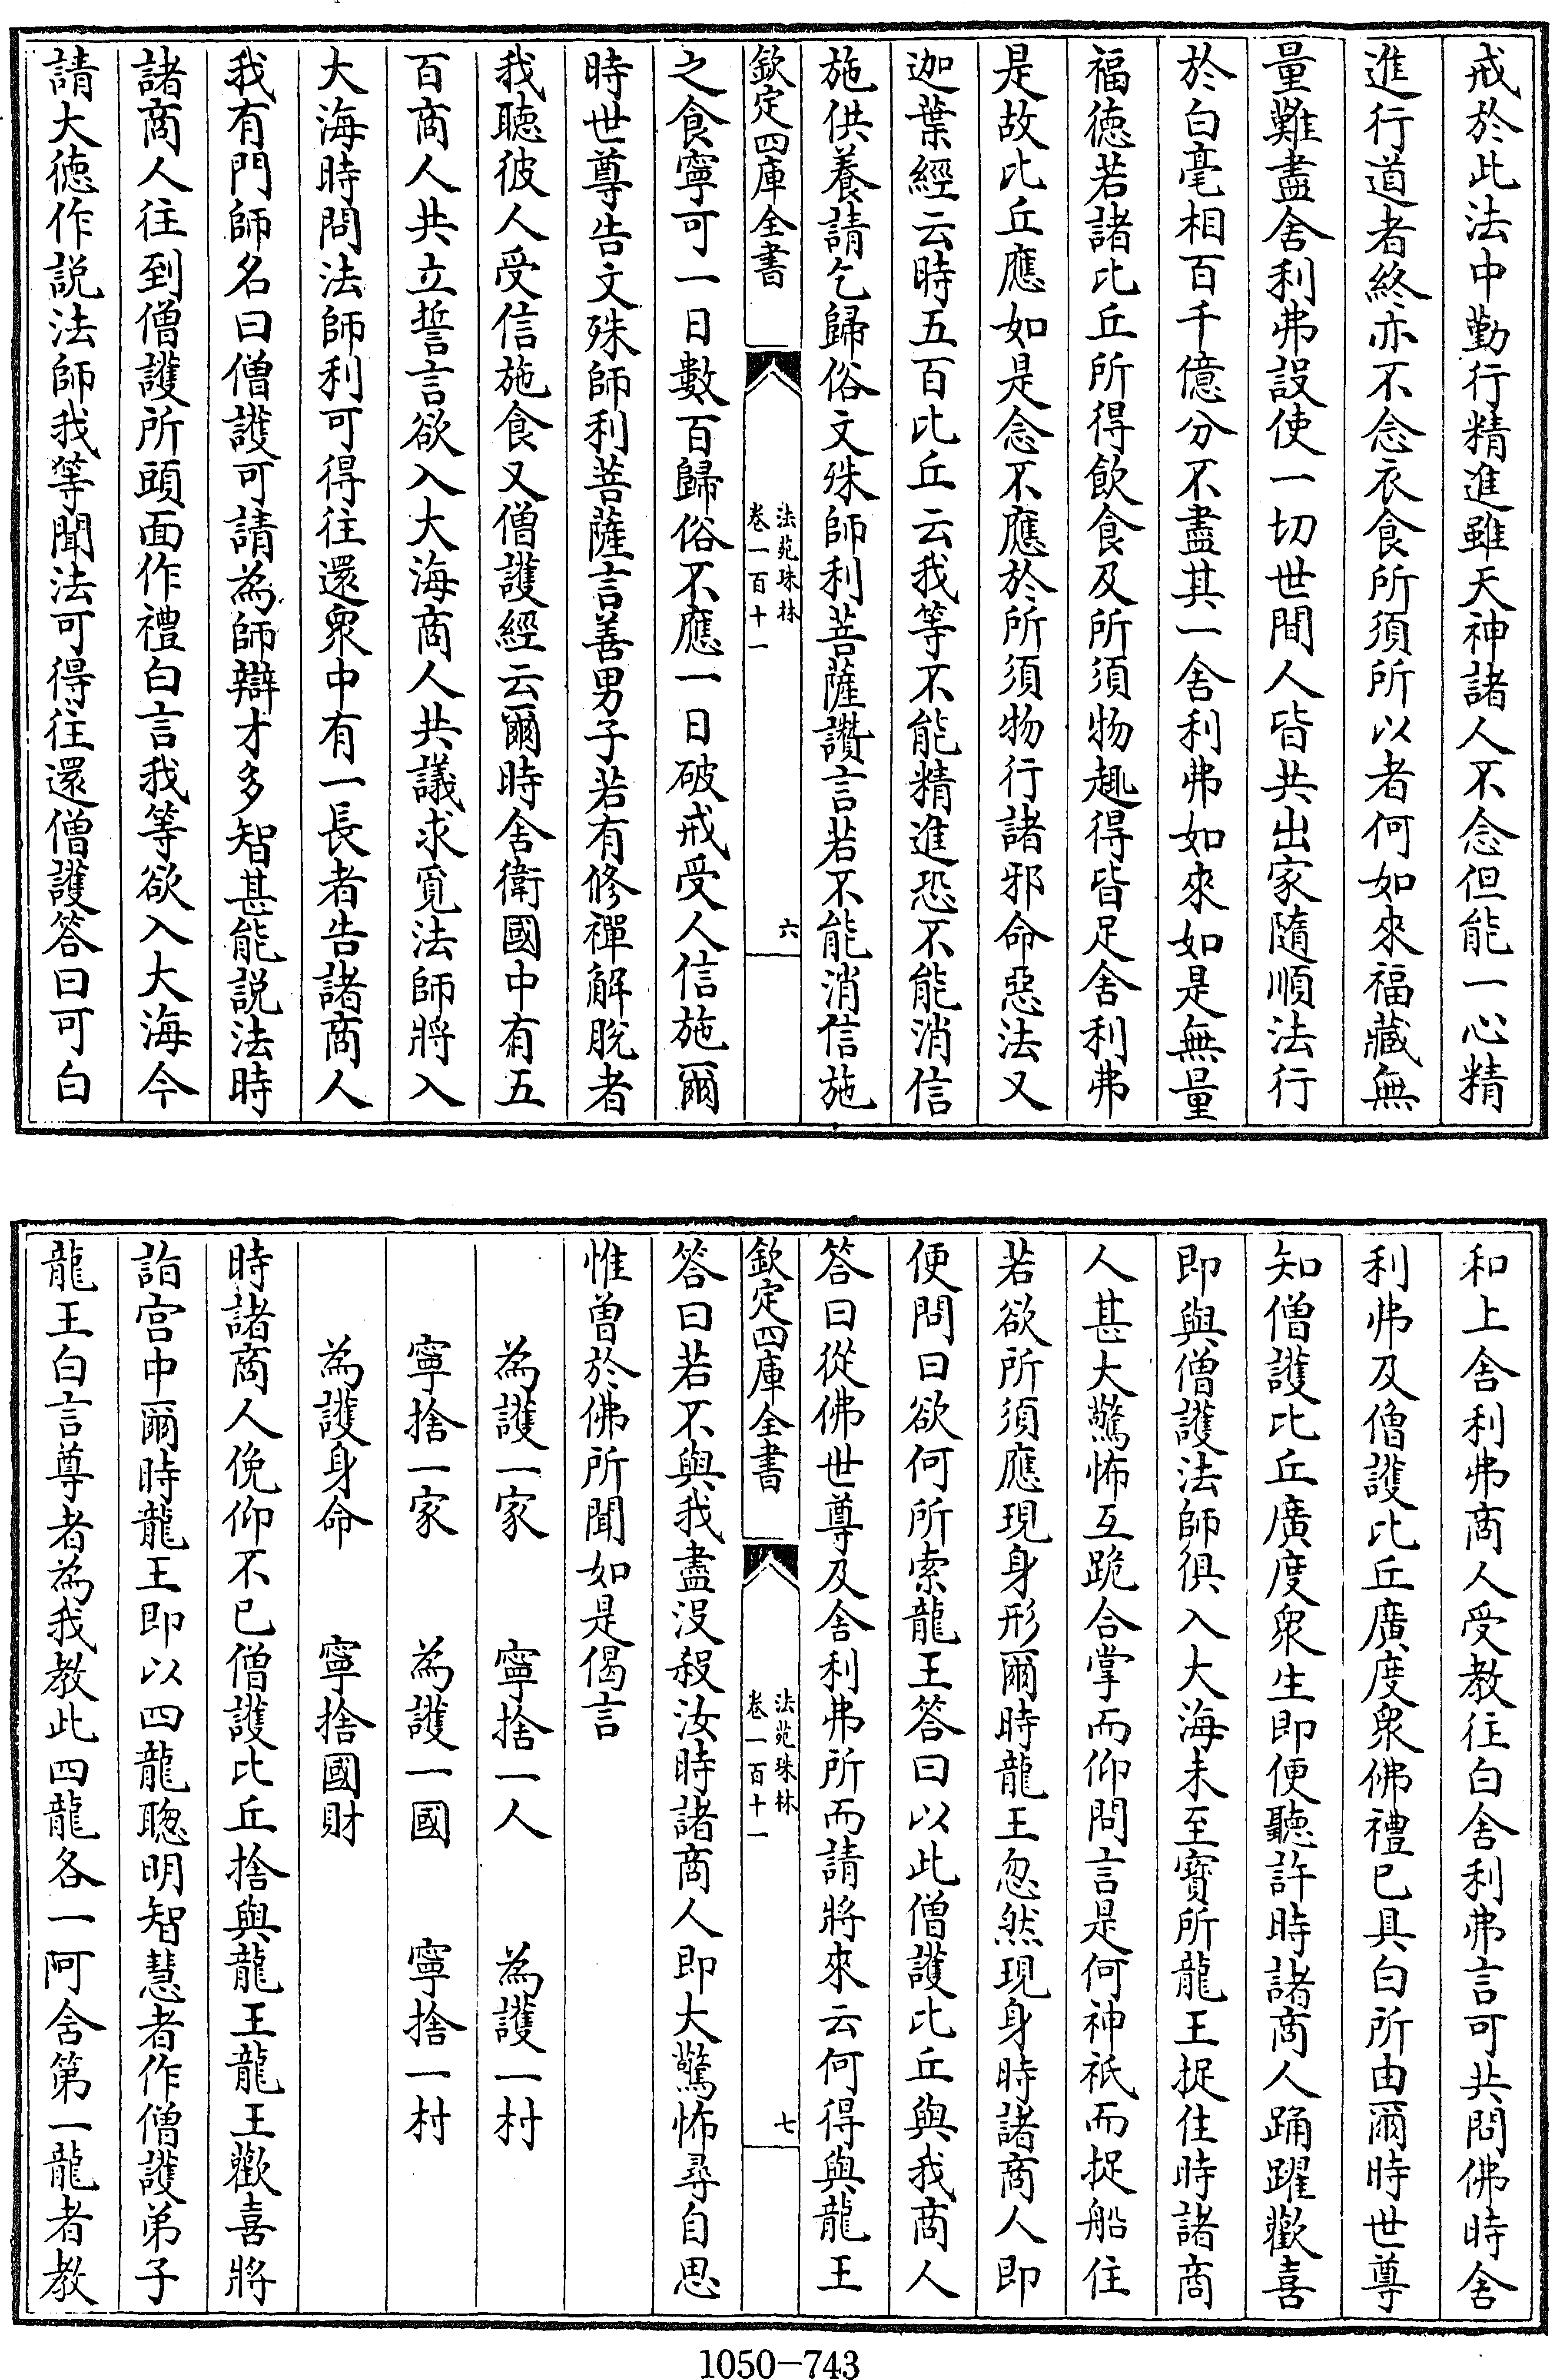 戒於此法中勤行精進雖天神諸人不念但能一心精
進行道者終亦不念衣食所須所以者何如來福藏無
量難盡舍利弗設使一切世間人皆共出家隨順法行
於白毫相百千億分不盡其一舍利弗如來如是無量
福徳若諸比丘所得飲食及所須物趣得皆足舍利弗
是故比丘應如是念不應於所須物行諸邪命惡法又
迦葉經云時五百比丘云我等不能精進恐不能消信
施供養請乞歸俗文殊師利菩薩讚言若不能消信施
欽定四庫全書
法苑珠林
卷一百十一
六
之食寧可一日數百歸俗不應一日破戒受人信施爾
時世尊告文殊師利菩薩言善男子若有修禪解脫者
我聽彼人受信施食又僧護經云爾時舍衛國中有五
百商人共立誓言欲入大海商人共議求覓法師將入
大海時問法師利可得往還衆中有一長者告諸商人
我有門師名曰僧護可請為師辯才多智甚能説法時
諸商人往到僧護所頭面作禮白言我等欲入大海今
請大徳作説法師我等聞法可得往還僧護答曰可白
和上舍利弗商人受教往白舍利弗言可共問佛時舍
利弗及僧護比丘廣度衆佛禮已具白所由爾時世尊
知僧護比丘廣度衆生即便聽許時諸商人踊躍歡喜
即與僧護法師俱入大海未至寳所龍王捉住時諸商
人甚大驚怖互跪合掌而仰問言是何神祇而捉船住
若欲所須應現身形爾時龍王忽然現身時諸商人即
便問曰欲何所索龍王答曰以此僧護比丘與我商人
答曰從佛世尊及舍利弗所而請將來云何得與龍王
欽定四庫全書
法苑珠林
卷一百十一
七
答曰若不與我盡沒殺汝時諸商人即大驚怖尋自思
惟曽於佛所聞如是偈言
為護一家　寧捨一人　為護一村
寧捨一家　為護一國　寧捨一村
為護身命　寧捨國財
時諸商人俛仰不已僧護比丘捨與龍王龍王歡喜將
詣宫中爾時龍王即以四龍聰明智慧者作僧護弟子
龍王白言尊者為我教此四龍各一阿含第一龍者教
1050-743